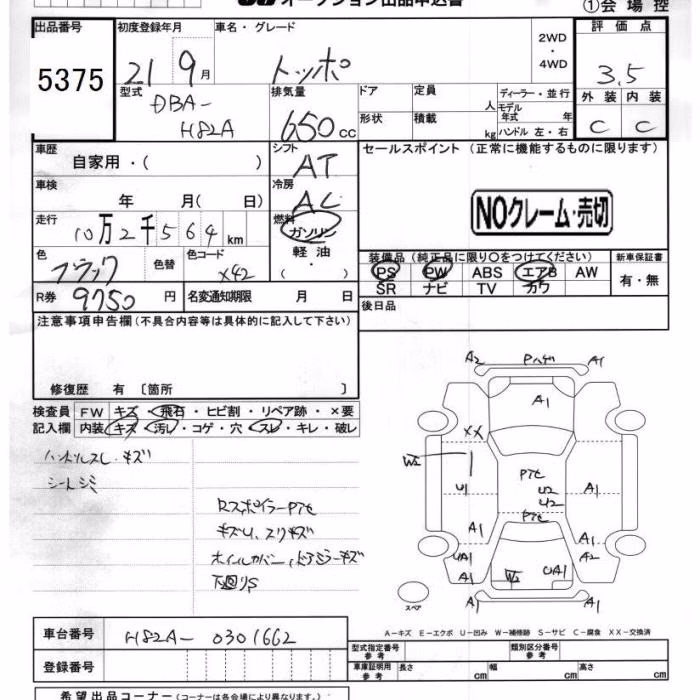 オークション出品申込書
①会場控
出品番号
5375
初度登録年月
21 9月
車名・グレード
トッポ
2WD・4WD
評価点
3.5
型式
DBA-H82A
排気量
650cc
ドア
定員
人
ディーラー・並行
モデル年式 年
形状
積載
kg
ハンドル 左・右
外装 内装
C C
車歴
自家用・( )
シフト
AT
セールスポイント (正常に機能するものに限ります)
NOクレーム・売切
車検
年 月( 日)
冷房
AC
走行
10万2千564km
燃料
ガソリン・軽油・( )
色
ブラック
色替
色コード
X42
装備品 (純正品に限り○をつけてください)
PS PW ABS エアB AW
SR ナビ TV カワ
新車保証書
有・無
R券
9750円
名変通知期限 月 日
後日品
注意事項申告欄 (不具合内容等は具体的に記入して下さい)
修復歴 有 〔箇所 〕
検査員記入欄
FW キズ・飛石・ヒビ割・リペア跡・×要
内装 キズ・汚レ・コゲ・穴・スレ・キレ・破レ
ハンドルスレ・キズ
シートシミ
RスポイラーPTセ
キズU、スリキズ
ホイルカバー、ドアミラーキズ
下廻りS
A2 Pハゲ A1
A1
XX
W2
U1
PTセ
U2
U2
PTセ
A1
A1
A1
UA1
A2
A1
W2
UA1
A1
スペア
A-キズ E-エクボ U-凹み W-補修跡 S-サビ C-腐食 XX-交換済
車台番号
H82A-0301662
登録番号
型式指定番号 参考
類別区分番号 参考
車庫証明用 参考
長さ cm
幅 cm
高さ cm
希望出品コーナー (コーナーは各会場により異なります。)